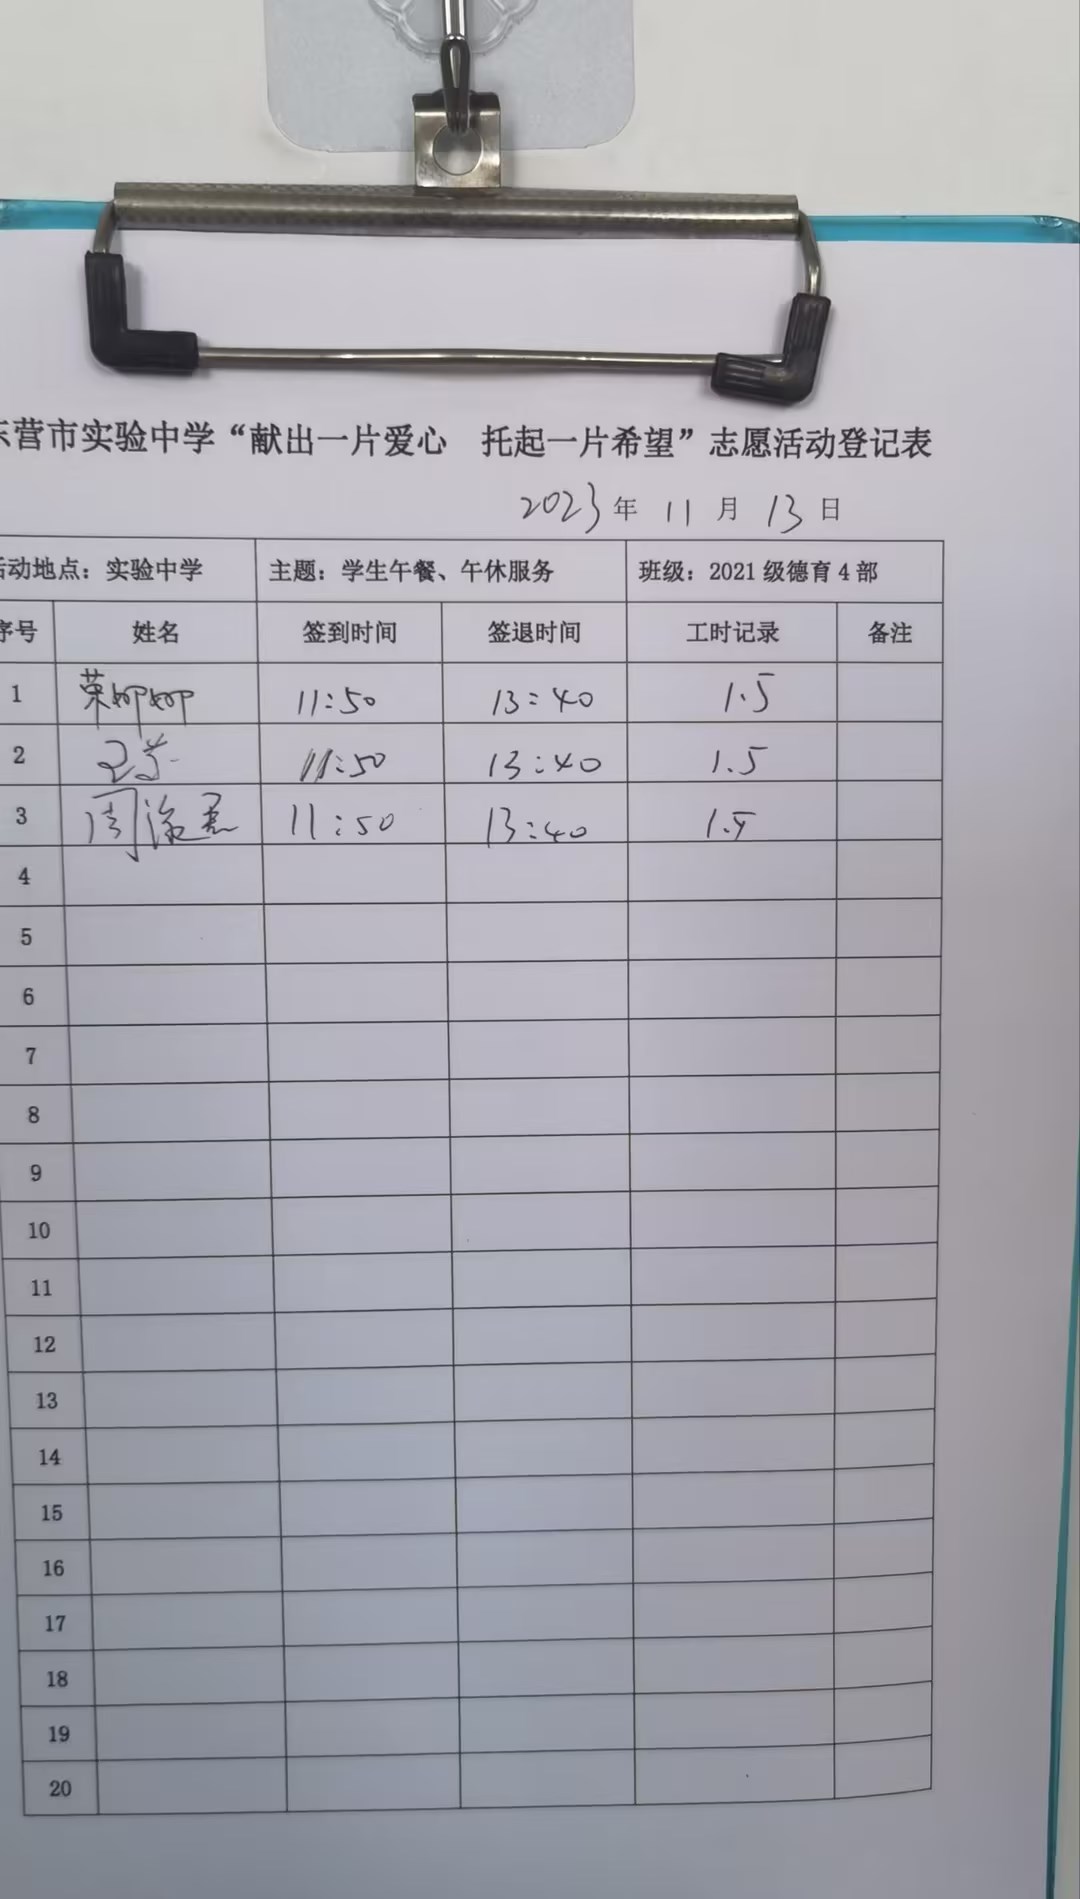 东营市实验中学“献出一片爱心 托起一片希望”志愿活动登记表
2023年 11月 13日
活动地点：实验中学 主题：学生午餐、午休服务 班级：2021 级德育 4 部
序号 姓名 签到时间 签退时间 工时记录 备注
1 荣姗姗 11:50 13:40 1.5
2 11:50 13:40 1.5
3 周 11:50 13:40 1.5
4
5
6
7
8
9
10
11
12
13
14
15
16
17
18
19
20